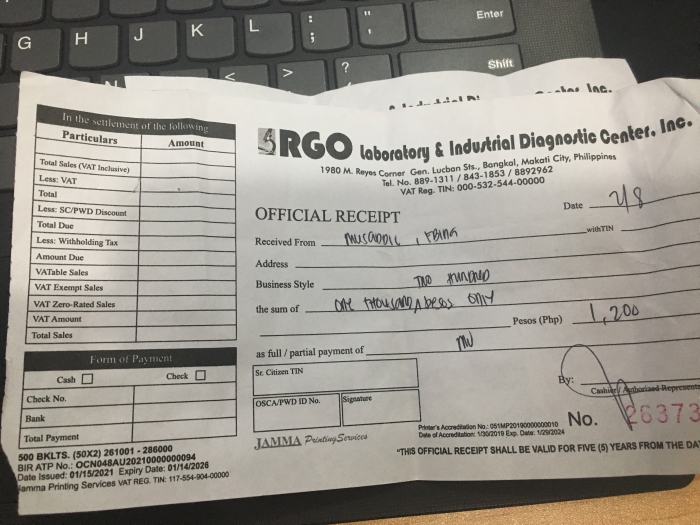 G H J K L : ; " ' Enter
< > ? Shift
Inc.
In the settlement of the following
Particulars Amount
Total Sales (VAT Inclusive)
Less: VAT
Total
Less: SC/PWD Discount
Total Due
Less: Withholding Tax
Amount Due
VATable Sales
VAT Exempt Sales
VAT Zero-Rated Sales
VAT Amount
Total Sales
Form of Payment
Cash Check
Check No.
Bank
Total Payment
500 BKLTS. (50X2) 261001 - 286000
BIR ATP No.: OCN048AU20210000000094
Date Issued: 01/15/2021 Expiry Date: 01/14/2026
Jamma Printing Services VAT REG. TIN: 117-554-904-00000
ARGO Laboratory & Industrial Diagnostic Center, Inc.
1980 M. Reyes Corner Gen. Lucban Sts., Bangkal, Makati City, Philippines
Tel. No. 889-1311 / 843-1853 / 8892962
VAT Reg. TIN: 000-532-544-00000
OFFICIAL RECEIPT
Date 2/8
Received From with TIN
Address
Business Style TWO HUNDRED
the sum of ONE THOUSAND ONLY
Pesos (Php) 1,200
as full / partial payment of
Sr. Citizen TIN
OSCA/PWD ID No. Signature
By:
Cashier / Authorized Represent
JAMMA Printing Services
Printer's Accreditation No.: 051MP20190000000010
Date of Accreditation: 1/30/2019 Exp. Date: 1/29/2024
No. 26373
"THIS OFFICIAL RECEIPT SHALL BE VALID FOR FIVE (5) YEARS FROM THE DA